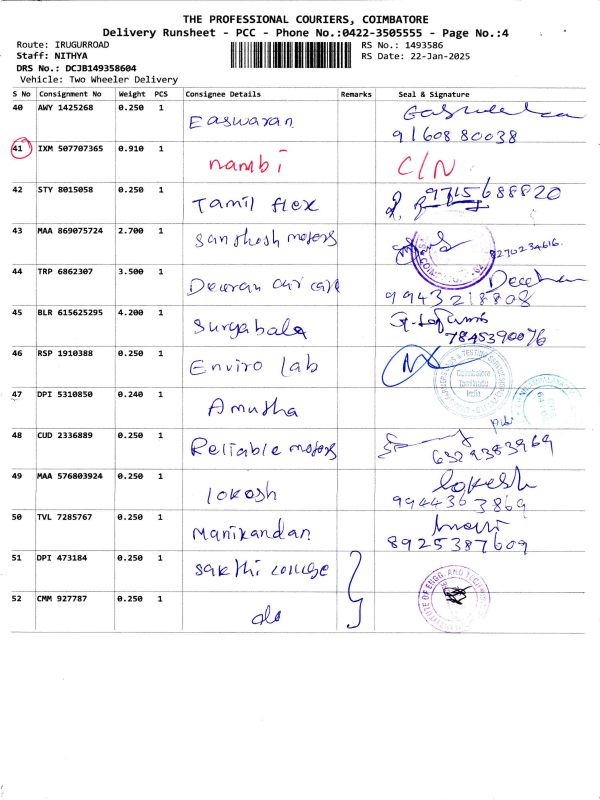 THE PROFESSIONAL COURIERS, COIMBATORE
Delivery Runsheet - PCC - Phone No.:0422-3505555 - Page No.:4
Route: IRUGURROAD
RS No.: 1493586
Staff: NITHYA
RS Date: 22-Jan-2025
DRS No.: DCJB149358604
Vehicle: Two Wheeler Delivery
S No Consignment No Weight PCS Consignee Details Remarks Seal & Signature
40 AWY 1425268 0.250 1 Easwaran
9160880038
41 IXM 507707365 0.910 1 nambi C/N
42 STY 8015058 0.250 1 Tamil flex 9715688820
43 MAA 869075724 2.700 1 Santhosh motors 8270234616.
44 TRP 6862307 3.500 1
9943218808
45 BLR 615625295 4.200 1 Suryabala
7845390076
46 RSP 1910388 0.250 1 Enviro lab
Coimbatore
Tamilnadu
India
47 DPI 5310850 0.240 1 Amutha
48 CUD 2336889 0.250 1 Reliable motors
6329383969
49 MAA 576803924 0.250 1 lokesh lokesh
9944363869
50 TVL 7285767 0.250 1 Manikandan
8925387609
51 DPI 473184 0.250 1 Sakthi college
52 CMM 927787 0.250 1 do